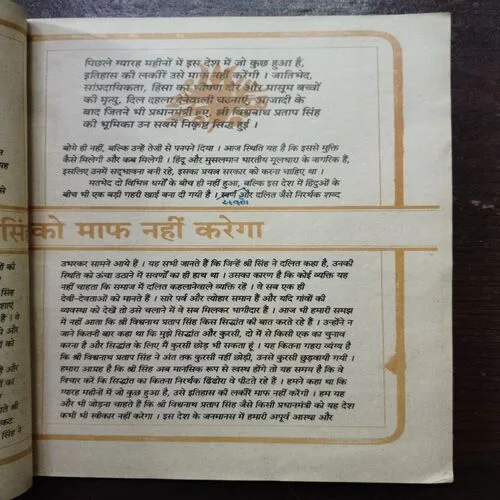 पिछले ग्यारह महीनों में इस देश में जो कुछ हुआ है,
इतिहास की लकीरें उसे माफ नहीं करेंगी । जातिभेद,
सांप्रदायिकता, हिंसा का भीषण दौर और मासूम बच्चों
की मृत्यु, दिल दहला देनेवाली घटनाएं, आजादी के
बाद जितने भी प्रधानमंत्री हुए, श्री विश्वनाथ प्रताप सिंह
की भूमिका उन सबमें निकृष्ट सिद्ध हुई ।
बोये ही नहीं, बल्कि उन्हें तेजी से पनपने दिया । आज स्थिति यह है कि इससे मुक्ति
कैसे मिलेगी और कब मिलेगी । हिंदू और मुसलमान भारतीय मूलधारा के नागरिक हैं,
इसलिए उनमें सद्भावना बनी रहे, इसका प्रयत्न सरकार को करना चाहिए था ।
मतभेद दो विभिन्न धर्मों के बीच ही नहीं हुआ, बल्कि इस देश में हिंदुओं के
बीच भी एक बड़ी गहरी खाई बना दी गयी है । स्वर्ण और दलित जैसे निरर्थक शब्द
सिंह को माफ नहीं करेगा
उभरकर सामने आये हैं । यह सभी जानते हैं कि जिन्हें श्री सिंह ने दलित कहा है, उनकी
स्थिति को ऊंचा उठाने में सवर्णों का ही हाथ था । उसका कारण है कि कोई व्यक्ति यह
नहीं चाहता कि समाज में दलित कहलानेवाले व्यक्ति रहें । वे सब एक ही
देवी-देवताओं को मानते हैं । सारे पर्व और त्योहार समान हैं और यदि गांवों की
व्यवस्था को देखें तो उसे चलाने में वे सब मिलकर भागीदार हैं । आज भी हमारी समझ
में नहीं आता कि श्री विश्वनाथ प्रताप सिंह किस सिद्धांत की बात करते रहे हैं । उन्होंने न
जाने कितनी बार कहा था कि मुझे सिद्धांत और कुरसी, दो में से किसी एक का चुनाव
करना है और सिद्धांत के लिए मैं कुरसी छोड़ भी सकता हूं । यह कितना गहरा व्यंग्य है
कि श्री विश्वनाथ प्रताप सिंह ने अंत तक कुरसी नहीं छोड़ी, उनसे कुरसी छुड़वायी गयी ।
हमारा आग्रह है कि श्री सिंह अब मानसिक रूप से स्वस्थ होंगे तो यह समय है कि वे
विचार करें कि सिद्धांत का कितना निरर्थक ढिंढोरा वे पीटते रहे हैं । हमने कहा था कि
ग्यारह महीनों में जो कुछ हुआ है, उसे इतिहास की लकीरें माफ नहीं करेंगी । हम यह
और भी जोड़ना चाहते हैं कि श्री विश्वनाथ प्रताप सिंह जैसे किसी प्रधानमंत्री को यह देश
कभी भी स्वीकार नहीं करेगा । इस देश के जनमानस में हमारी अपूर्व आस्था और